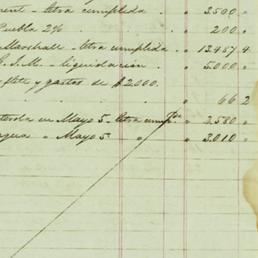 ent - letra cumplida " 3500 "
Puebla 2% " 200 "
Marshall - letra cumplida " 12457.4
J. M. - liquidación " 5000 "
flete y gastos de $2.000.
" 66 2
en Mayo 5 - letra cump " 2.580 "
Mayo 5 " " 3.010 "